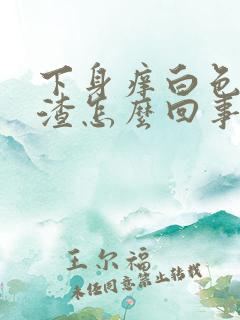 下身痒白色
渣怎麼回事
王尔福
未经同意禁止转载